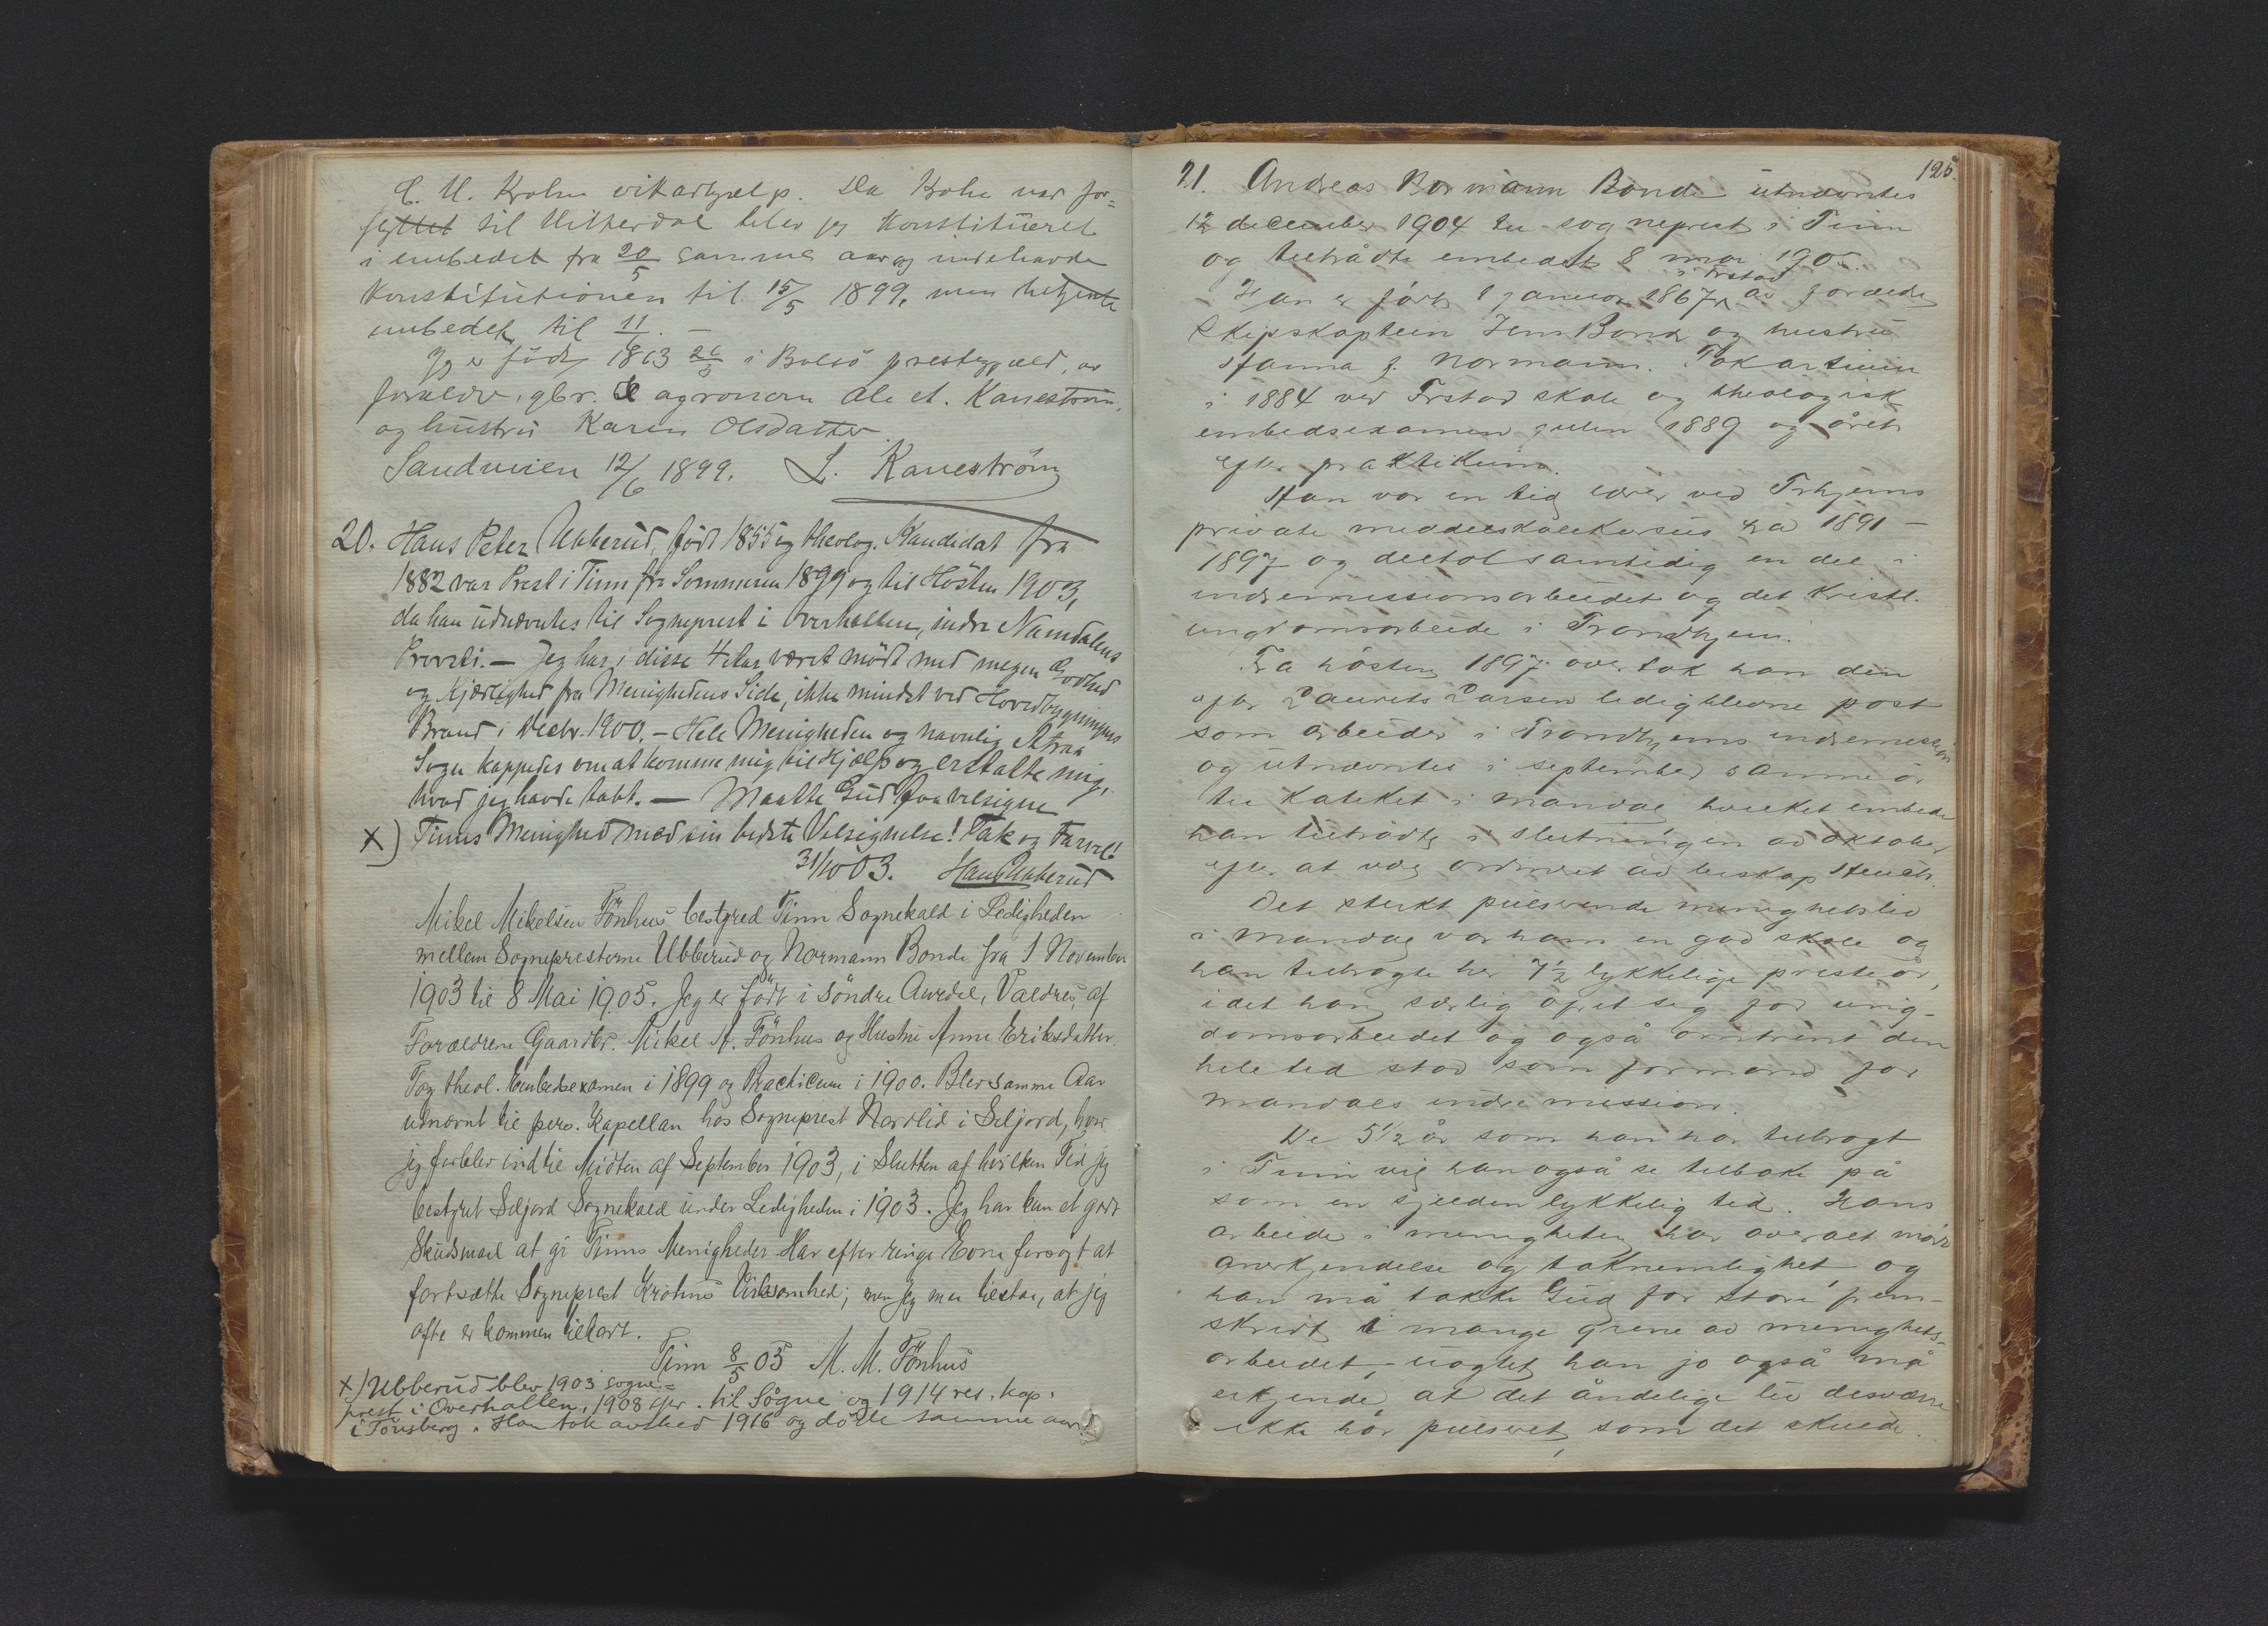 C. U. Krohn vikarhjælp. Da Krohn var for=
flyttet til Hitherdal blev jeg Konstitueret
i embedet fra 20/5 samme aar og indehavde
Konstitutionen til 15/5 1899, men betjente
embedet til 11/6. —
Jeg er född 1863 26/8 i Bolsö prestegjæld, av
forældre, gbr. & agronom Ole A. Kaneström,
og hustru Karen Olsdatter.
Sandvien 12/6 1899. L. Kaneström
20. Hans Peter Ubberud, född 1855 og theolog. Kandidat fra
1882 var Prest i Tinn fra Sommeren 1899 og til Hösten 1903,
da han udnævntes til Sogneprest i Overhallen, indre Namdalens
Provsti. — Jeg har i disse 4 Aar været mödt med megen Godhed
og Kjærlighed fra Menighedens Side, ikke mindst ved Hovedbygningens
Brand i Decbr. 1900. — Hele Menigheden og navnlig Atraa
Sogn kappedes om at komme mig til Hjælp og erstatte mig,
hvad jeg havde tabt. — Maatte Gud faa velsigne
x) Tinns Menighed med sin bedste Velsignelse! Tak og Farvel!
31/10 03. Hans Ubberud
Mikel Mikelsen Fönhus bestyred Tinn Sognekald i Ledigheden
mellem Sognepresterne Ubberud og Normann Bonde fra 1 November
1903 til 8 Mai 1905. Jeg er född i Söndre Aurdal, Valdres, af
Forældrene Gaardbr. Mikel A. Fönhus og Hustru Anne Eriksdatter.
Tog theol. Embedsexamen i 1899 og Practicum i 1900. Blev samme Aar
udnævnt til pers. Kapellan hos Sogneprest Nordlid i Seljord, hvor
jeg forblev indtil Midten af September 1903, i Slutten af hvilken Tid jeg
bestyret Seljord Sognekald under Ledigheden i 1903. Jeg har kun et godt
Skudsmaal at gi Tinns Menigheder. Har efter ringe Evne forsøgt at
fortsætte Sogneprest Krohns Virksomhed; men jeg maa tilstaa, at jeg
ofte er kommen tilkort.
Tinn 8/5 05 M. M. Fönhus
x) Ubberud blev 1903 sogne=
prest i Overhallen, 1908 til Sögne og 1914 res. kap.
i Tönsberg. Han tok avsked 1916 og döde samme aar.
125.
21. Andreas Normann Bonde utnævntes
12 december 1904 til sogneprest i Tinn
og tiltrådte embedet 8 mai 1905.
i Frstad
Han er födt 1 januar 1867 av forældre
Skipskaptein Jens Bonde og hustru
Hanna f. Normann. Tok artium
i 1884 ved Frstad skole og theologisk
embedsexamen julen 1889 og året
efter praktikum.
Han var en tid lærer ved Trhjems
private middelskolekursus fra 1891 —
1897 og deltok samtidig en del i
indremissionsarbeidet og det kristl.
ungdomsarbeide i Trondhjem.
Fra hösten 1897 overtok han den
efter Laurits Larsen ledigblevne post
som arbeider i Trondhjems indremission
og utnævntes i september samme år
til kateket i Mandal hvilket embede
han tiltrådte i slutningen av oktober
efter at være ordineret av biskop Heuch.
Det sterkt pulserende menighetsliv
i Mandal var ham en god skole og
han tilbragte her 7 1/2 lykkelige presteår,
idet han særlig ofret sig for ung-
domsarbeidet og også omtrent den
hele tid stod som formand for
Mandals indre mission.
De 5 1/2 år som han har tilbragt
i Tinn vil han også se tilbake på
som en sjelden lykkelig tid. Hans
arbeide i menigheten har overalt mött
anerkjendelse og taknemlighet og
han må takke Gud for store frem-
skridt i mange grene av menighets-
arbeidet, – uagtet han jo også må
erkjende, at det åndelige liv desværre
ikke har pulseret som det skulde.